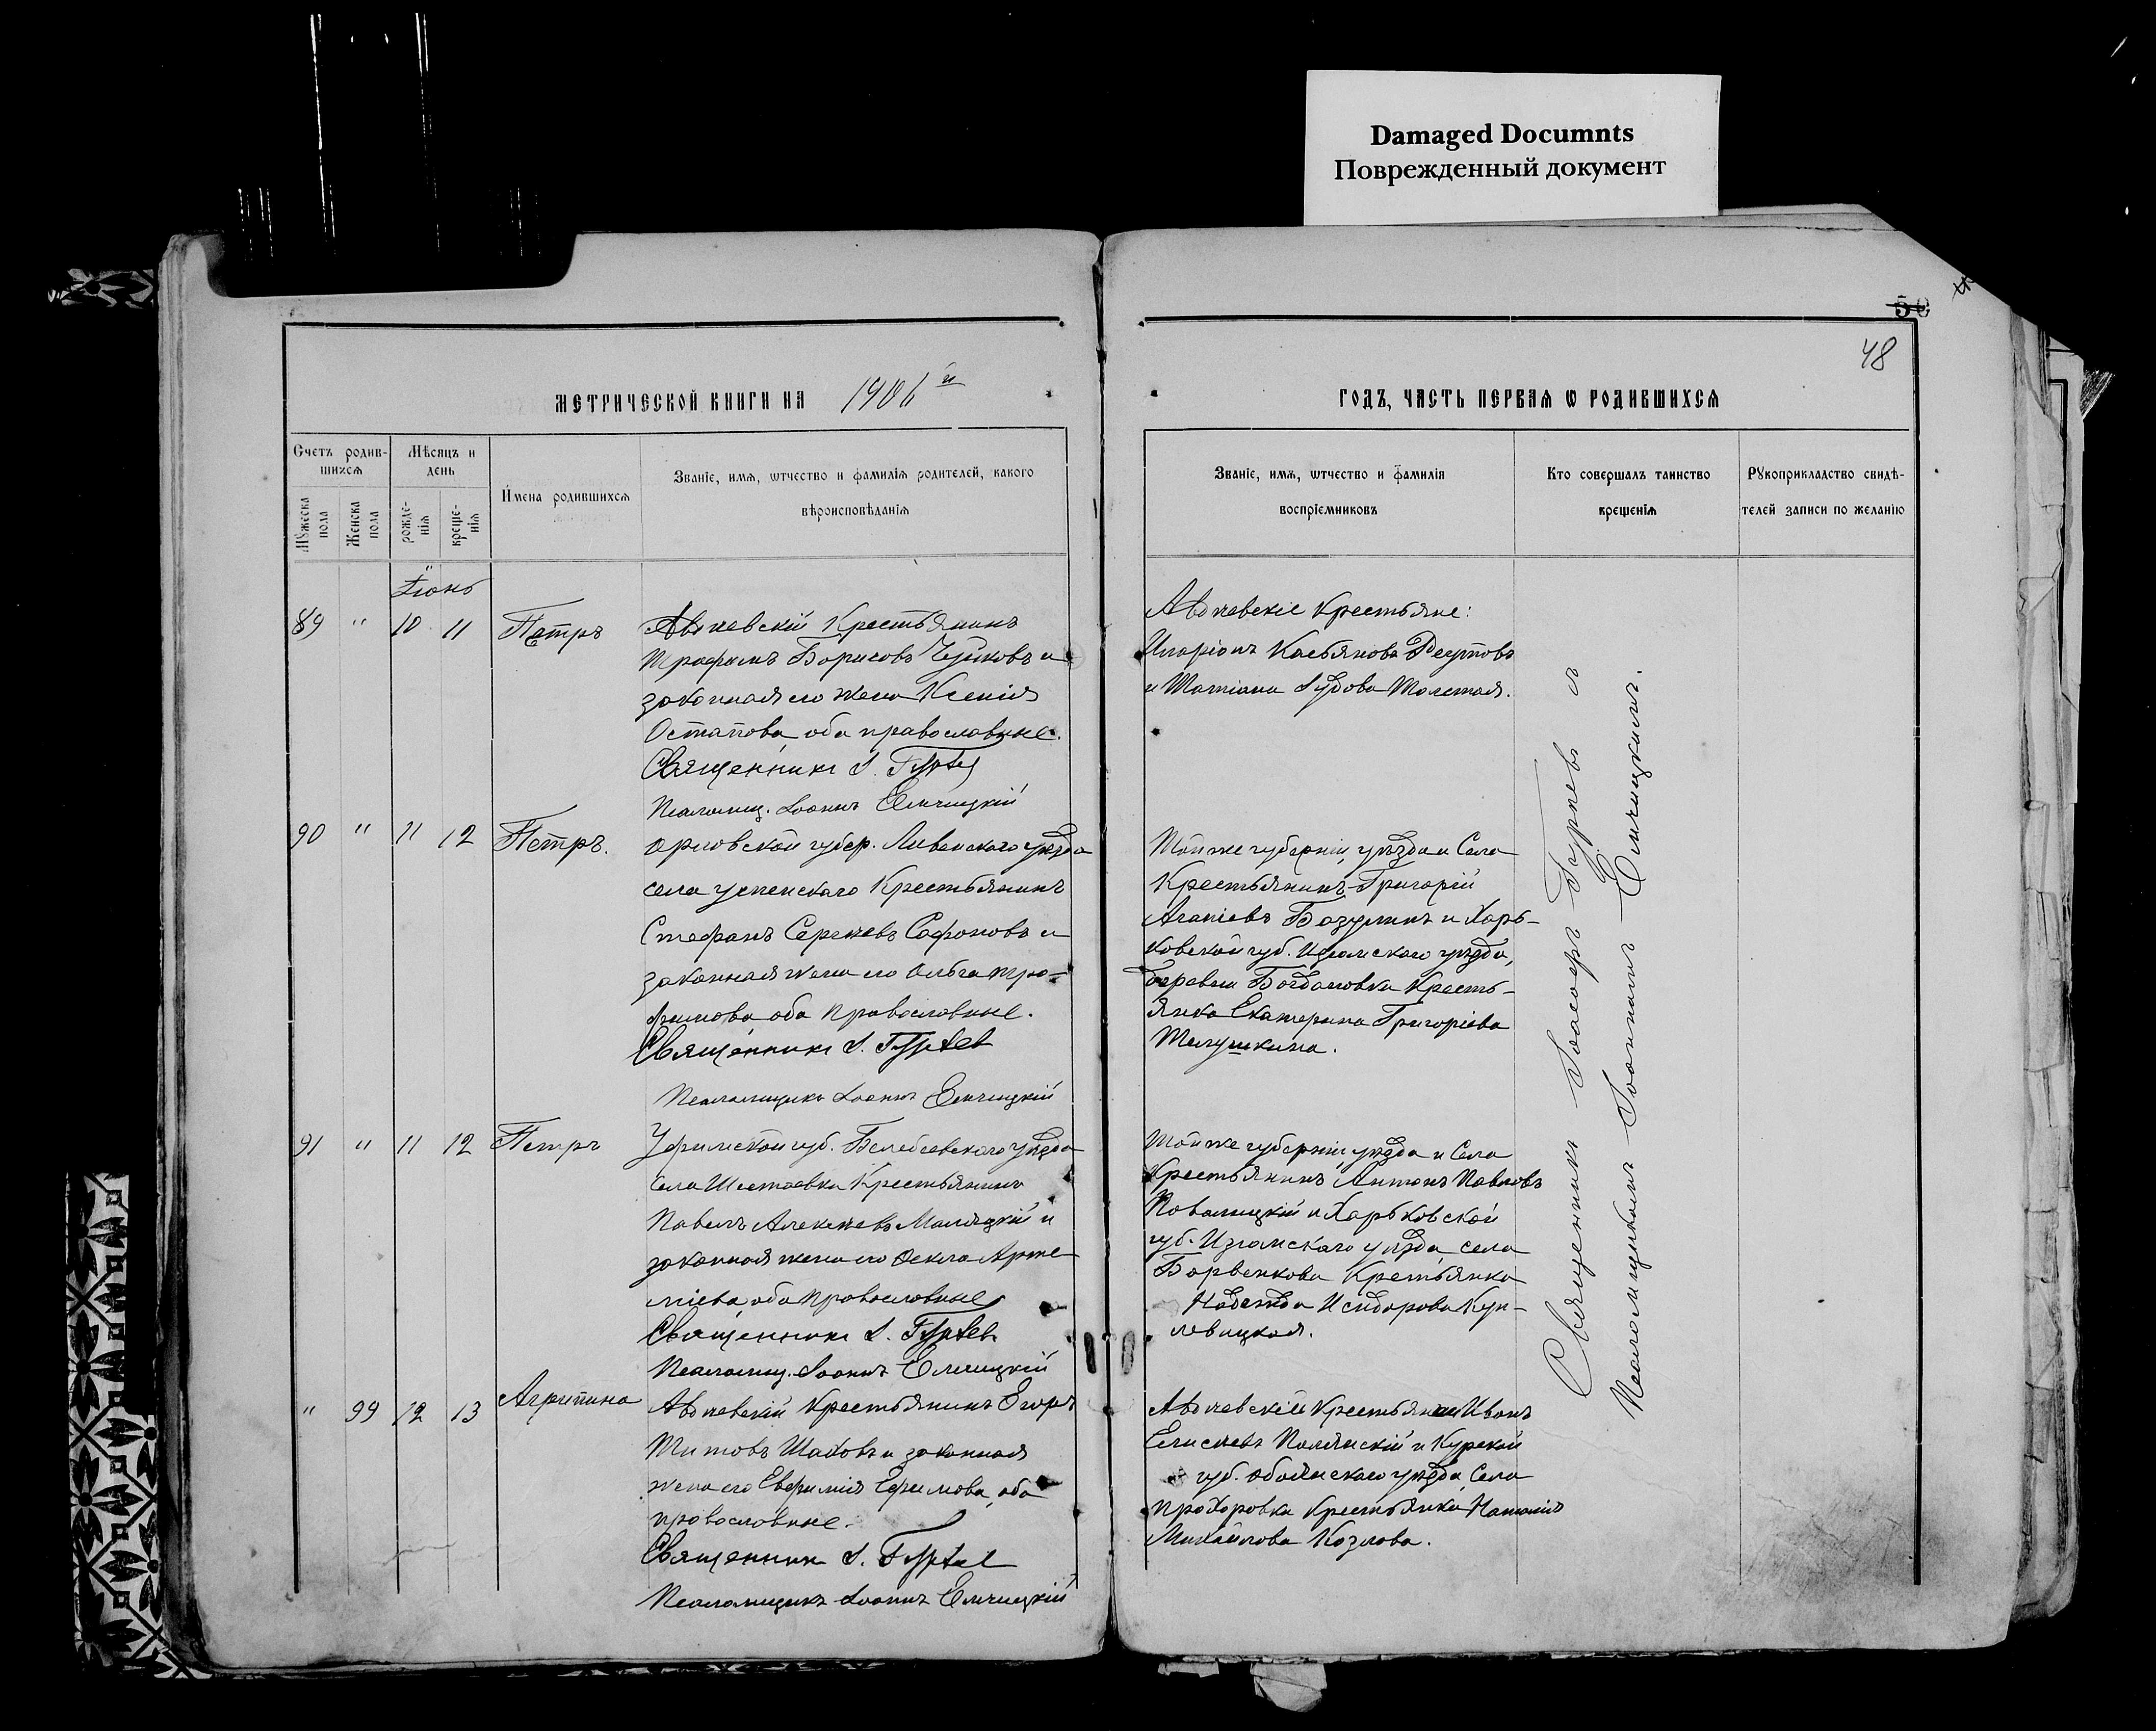 Damaged Documnts
Поврежденный документ
50
48
МЕТРИЧЕСКОЙ КНИГИ НА 1906 й
ГОДЪ, ЧАСТЬ ПЕРВАЯ Ѡ РОДИВШИХСЯ
Счетъ родив-
шихся
Мужеска пола
Женска пола
Мѣсяцъ и
день
рожде-
нія
креще-
нія
Имена родившихся
Званіе, имя, ѿчество и фамилія родителей, какого
вѣроисповѣданія
Званіе, имя, ѿчество и фамилія
воспріемниковъ
Кто совершалъ таинство
крещенія
Рукоприкладство свидѣ-
телей записи по желанію
Іюнь
89 " 10 11 Петръ
Крестьянинъ
Трофимъ Борисовъ и
законная его жена Ксенія
Остапова, оба православные.
Священникъ І. Гуртев
Псаломщ. Іоаннъ Емчицкій
Крестьяне:
Иларіонъ Касьяновъ Реутовъ
и Татіана Толстая.
90 " 11 12 Петръ.
Орловской губер. Ливенскаго уѣзда
села Успенскаго Крестьянинъ
Стефанъ Сергѣевъ Сафоновъ и
законная жена его Ольга Тро-
фимова, оба православные.
Священникъ І. Гуртев
Псаломщикъ Іоаннъ Емчицкій
Той же губерніи, уѣзда и Села
Крестьянинъ Григорій
Агапіевъ и Харь-
ковской губ. Изюмскаго уѣзда,
деревни Богдановка Кресть-
янка Екатерина Григоріева
91 " 11 12 Петръ
Уфимской губ. Белебеевскаго уѣзда
Села Крестьянинъ
Павелъ Алексѣевъ и
законная жена его Ѳекла Арте-
міева, оба православные
Священникъ І. Гуртев
Псаломщ. Іоаннъ Емчицкій
Той же губерніи, уѣзда и Села
Крестьянинъ Антонъ Павловъ
и Харьковской
губ. Изюмскаго уѣзда, села
Барвенкова Крестьянка
Надежда Исидорова
" 99 12 13 Агрипина
Крестьянинъ Егоръ
Титовъ Шаховъ и законная
жена его Евфимія Ефимова, оба
православные.
Священникъ І. Гуртев
Псаломщикъ Іоаннъ Емчицкій
Иванъ
Елисѣевъ Полянскій и Курской
губ. Обоянскаго уѣзда, Села
Прохоровка Крестьянка Наталія
Михайлова Козлова.
Священникъ Іоасафъ Гуртевъ съ
Псаломщикомъ Іоанномъ Емчицкимъ.